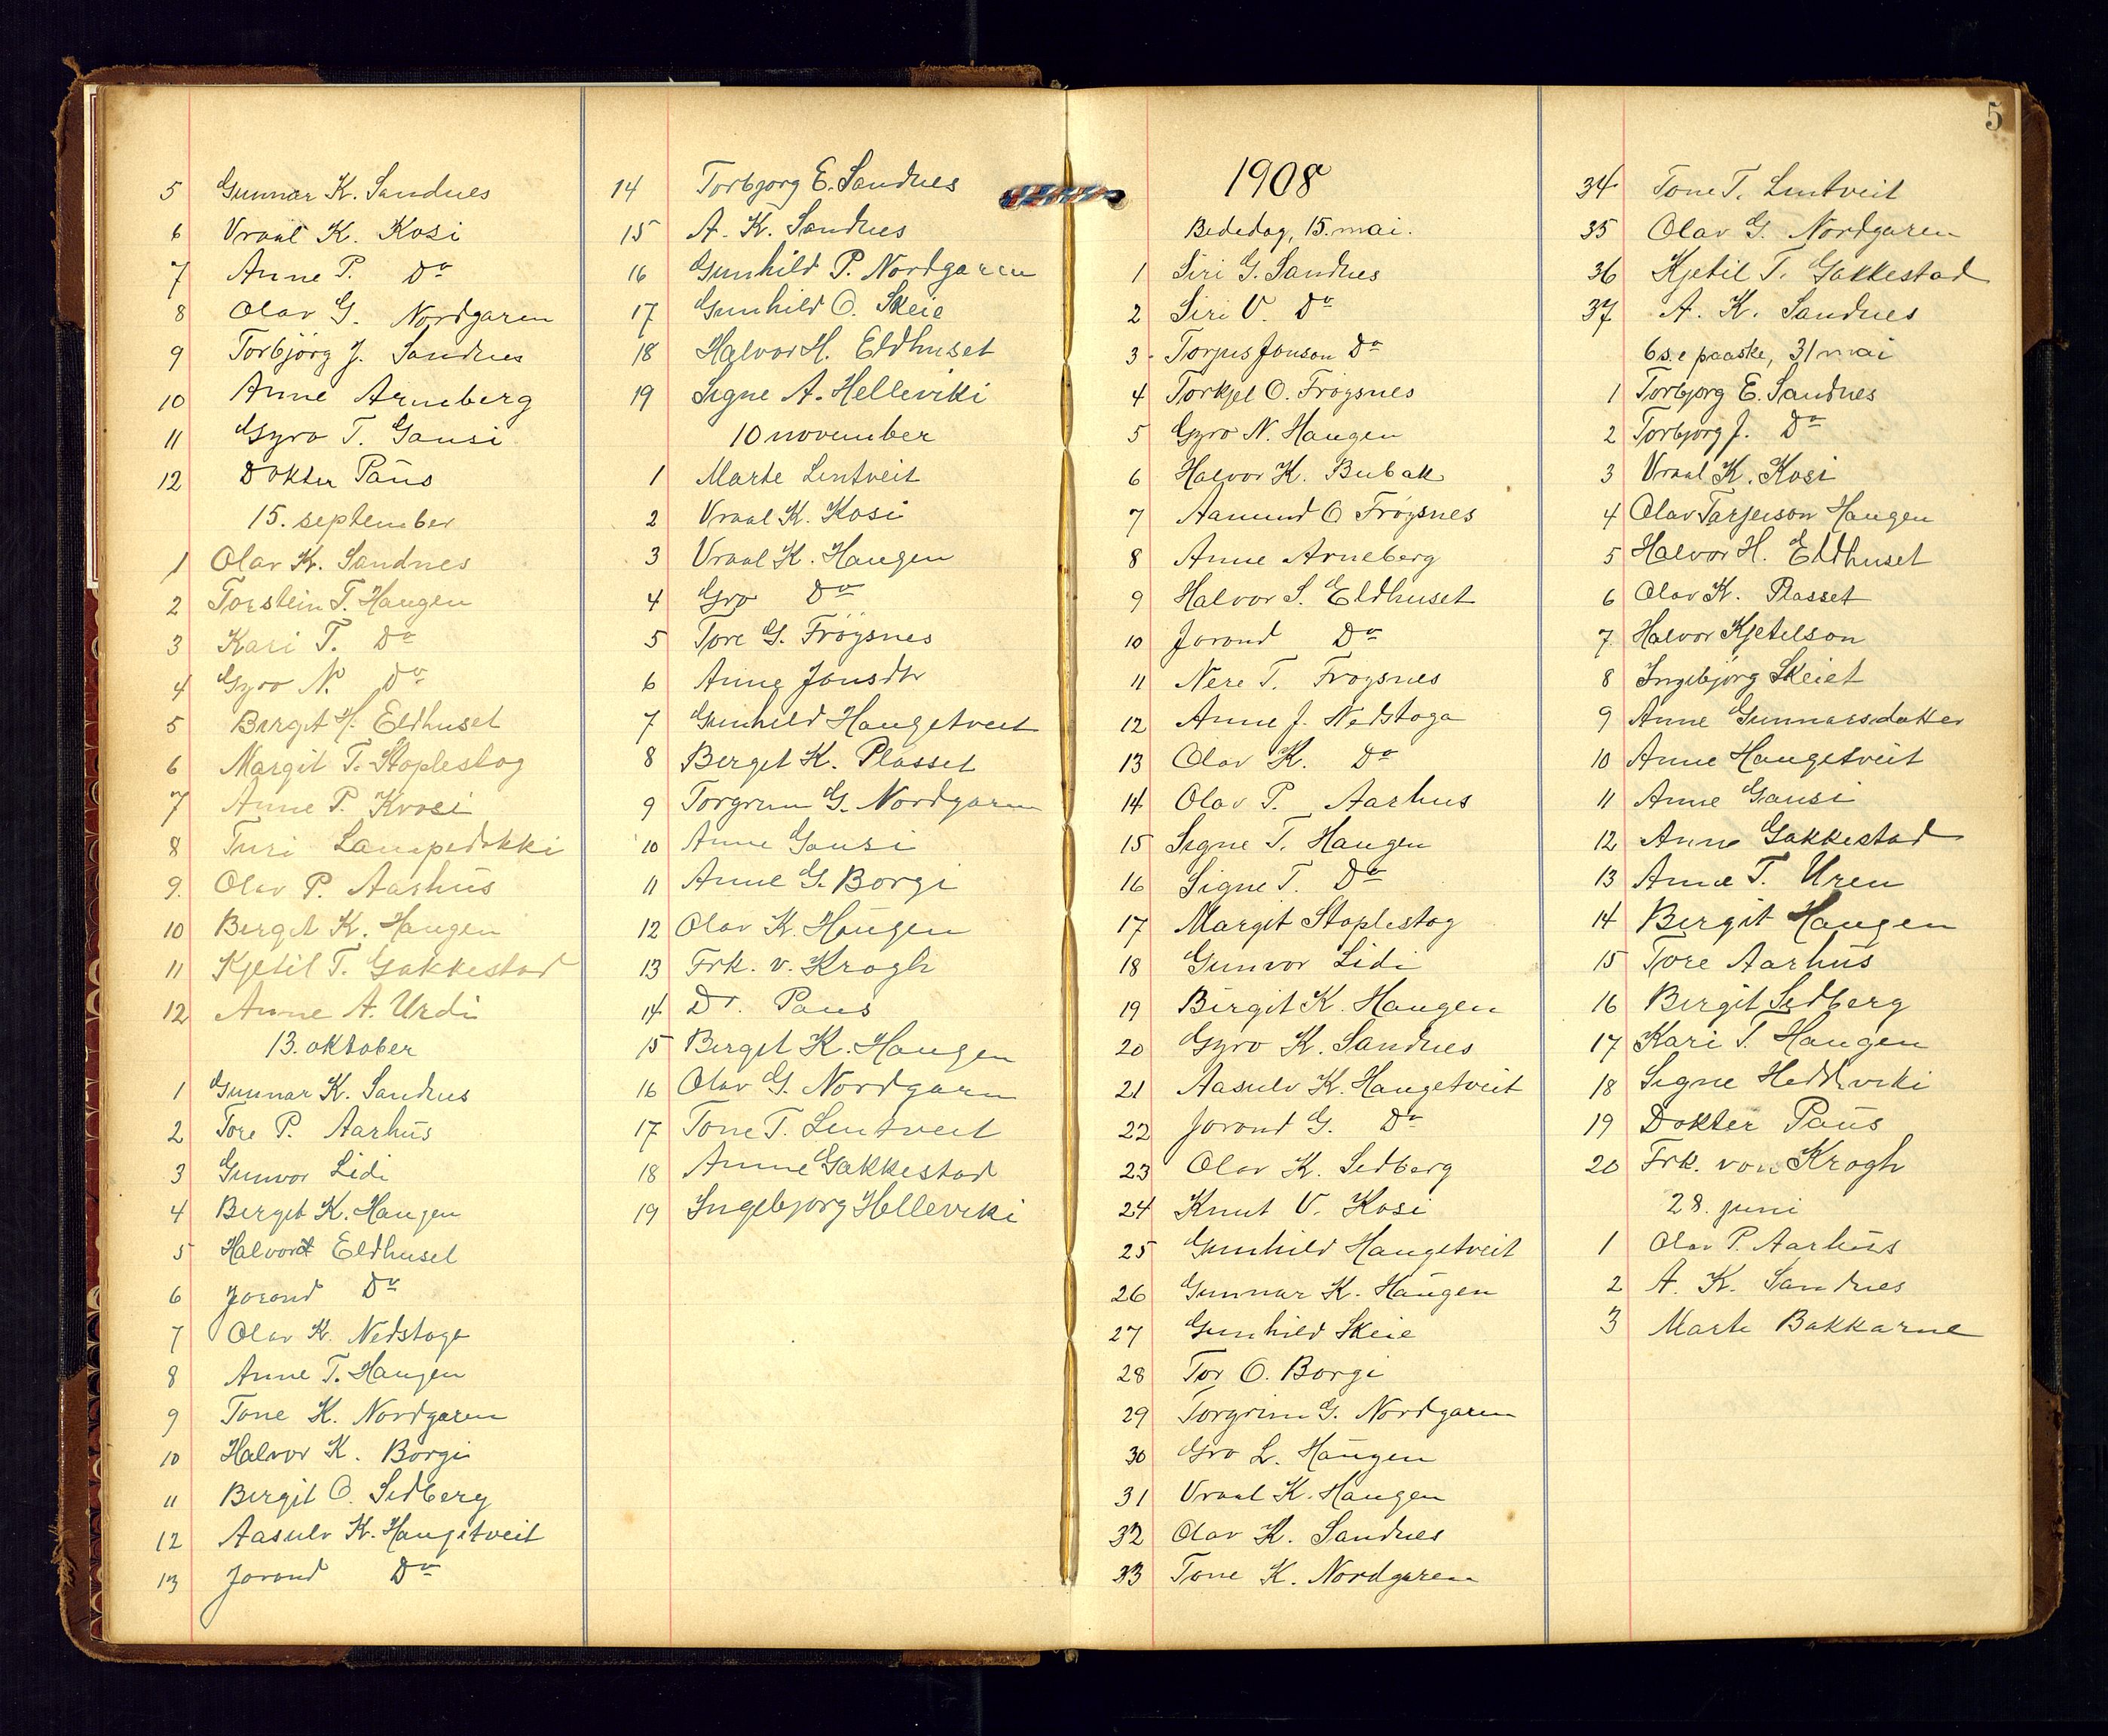 5 Gunnar K. Sandnes
6 Vraal K. Kosi
7 Anne P. Do
8 Olav G. Nordgaren
9 Torbjörg J. Sandnes
10 Anne Arneberg
11 Gyro T. Gausi
12 Dokter Paus
15. september
1 Olav K. Sandnes
2 Torstein T. Haugen
3 Kari T. Do
4 Gyro N. Do
5 Bergit H. Eldhuset
6 Margit T. Stoplestog
7 Anne P. Kvosi
8 Turi Lampedokki
9. Olav P. Aarhus
10 Bergit K. Haugen
11 Kjetil T. Gakkestad
12 Anne A. Urdi
13. oktober
1 Gunnar K. Sandnes
2 Tore P. Aarhus
3 Gunvor Lidi
4 Bergit K. Haugen
5 Halvor Eldhuset
6 Jorond Do
7 Olav K. Nedstoga
8 Anne T. Haugen
9 Tone K. Nordgaren
10 Halvor K. Borgi
11 Bergit O. Sedberg
12 Aasulv K. Haugetveit
13 Jorond Do
14 Torbjorg E. Sandnes
15 A. K. Sandnes
16 Gunhild P. Nordgaren
17 Gunhild O. Skeie
18 Halvor H. Eldhuset
19 Signe A. Helleviki
10 november
1 Marte Lintveit
2 Vraal K. Kosi
3 Vraal K. Haugen
4 Gro Do
5 Tore G. Fröysnes
6 Anne Jonsdtr
7 Gunhild Haugetveit
8 Berget K. Plasset
9 Torgrim G. Nordgaren
10 Anne Gausi
11 Anne G. Borgi
12 Olav K. Haugen
13 Frk. v. Krogh
14 Dr. Paus
15 Bergit K. Haugen
16 Olav G. Nordgarn
17 Tone T. Lintveit
18 Anne Gakkestad
19 Ingebjorg Helleviki
5
1908
Bededag, 15. mai.
1 Siri G. Sandnes
2 Siri V. Do
3 Torjus Jonson Do
4 Torkjel O. Fröysnes
5 Gyro N. Haugen
6 Halvor K. Bubak
7 Aamund O Fröysnes
8 Anne Arneberg
9 Halvor S. Eldhuset
10 Jorond Do
11 Nere T. Froysnes
12 Anne J. Nedstoga
13 Olav K. Do
14 Olav P. Aarhus
15 Signe T. Haugen
16 Signe T. Do
17 Margit Stoplestog
18 Gunvor Lidi
19 Birgit K. Haugen
20 Gyro K. Sandnes
21 Aasulv K. Haugetveit
22 Jorond G. Do
23 Olav K. Sedberg
24 Knut V. Kosi
25 Gunhild Haugetveit
26 Gunnar K. Haugen
27 Gunhild Skeie
28 Tor O. Borgi
29 Torgrim G. Nordgaren
30 Gro L. Haugen
31 Vraal K. Haugen
32 Olav K. Sandnes
33 Tone K. Nordgaren
34 Tone T. Lintveit
35 Olav G. Nordgaren
36 Kjetil T. Gakkestad
37 A. K. Sandnes
6 s. e paaske, 31 mai
1 Torbjorg E. Sandnes
2 Torbjorg J. Do
3 Vraal K. Kosi
4 Olav Tarjeison Haugen
5 Halvor H. Eldhuset
6 Olav K. Plasset
7. Halvor Kjetilson
8 Ingebjørg Skeiet
9 Anne Gunnarsdatter
10 Anne Haugetveit
11 Anne Gausi
12 Anne Gakkestad
13 Anne T. Uren
14 Bergit Haugen
15 Tore Aarhus
16 Bergit Sedberg
17 Kari T. Haugen
18 Signe Helleviki
19 Dokter Paus
20 Frk. von Krogh
28. juni
1 Olav P. Aarhus
2 A. K. Sandnes
3 Marte Bakkarne